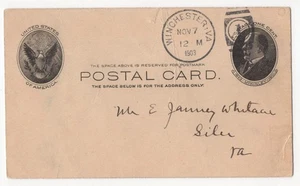 UNITED STATES
OF AMERICA
WINCHESTER, VA
NOV 7
12 M
1901
ONE CENT
THE SPACE ABOVE IS RESERVED FOR POSTMARK.
POSTAL CARD.
THE SPACE BELOW IS FOR THE ADDRESS ONLY.
Mr E Janney Whitacre
Siler
Va